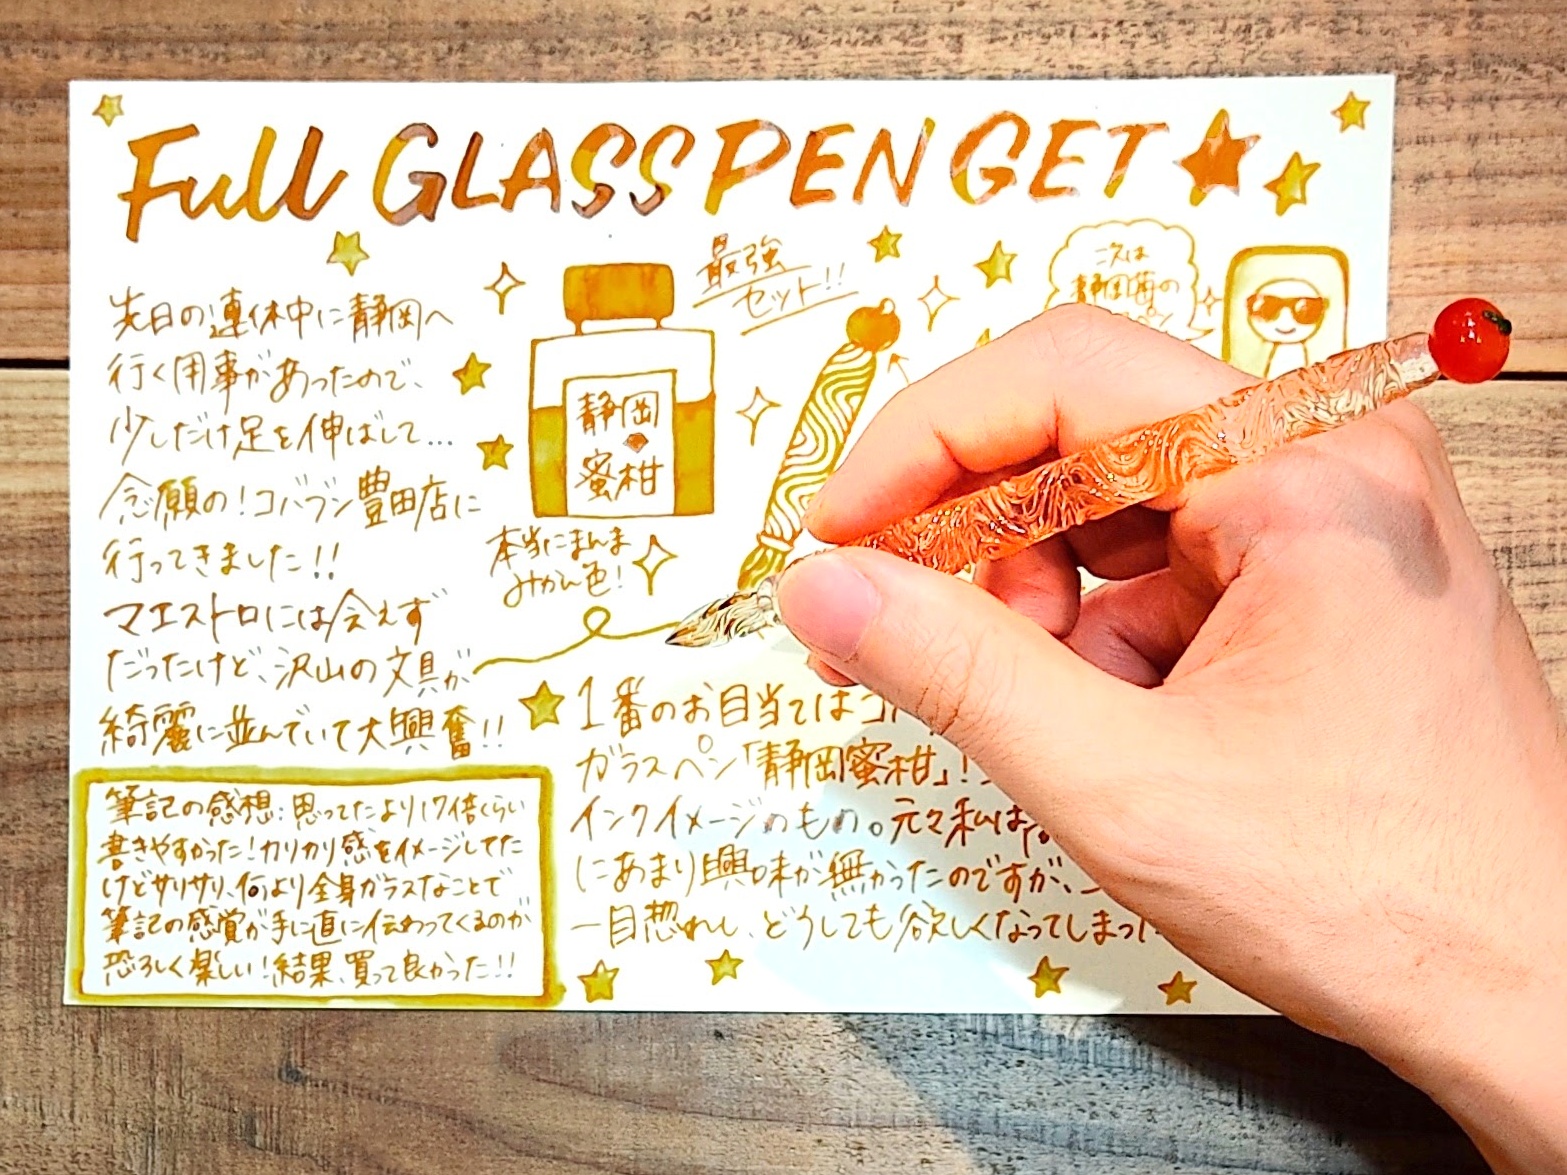 Full GLASS PEN GET
先日の連休中に静岡へ
行く用事があったので、
少しだけ足を伸ばして…
念願の!コバブン豊田店に
行ってきました!!
マエストロには会えず
だったけど、沢山の文具が
綺麗に並んでいて大興奮!!
最強
セット!!
静岡
蜜柑
本当にまんま
みかん色!
次は
静岡茵の
1番のお目当ては
ガラスペン「静岡蜜柑」!
インクイメージのもの。元々私は
にあまり興味が無かったのですが、
一目惚れし、どうしても欲しくなってしまっ
筆記の感想:思ってたより17倍くらい
書きやすかった!カリカリ感をイメージしてた
けどサリサリ、何より全身ガラスなことで
筆記の感覚が手に直に伝わってくるのが
恐ろしく楽しい!結果、買って良かった!!